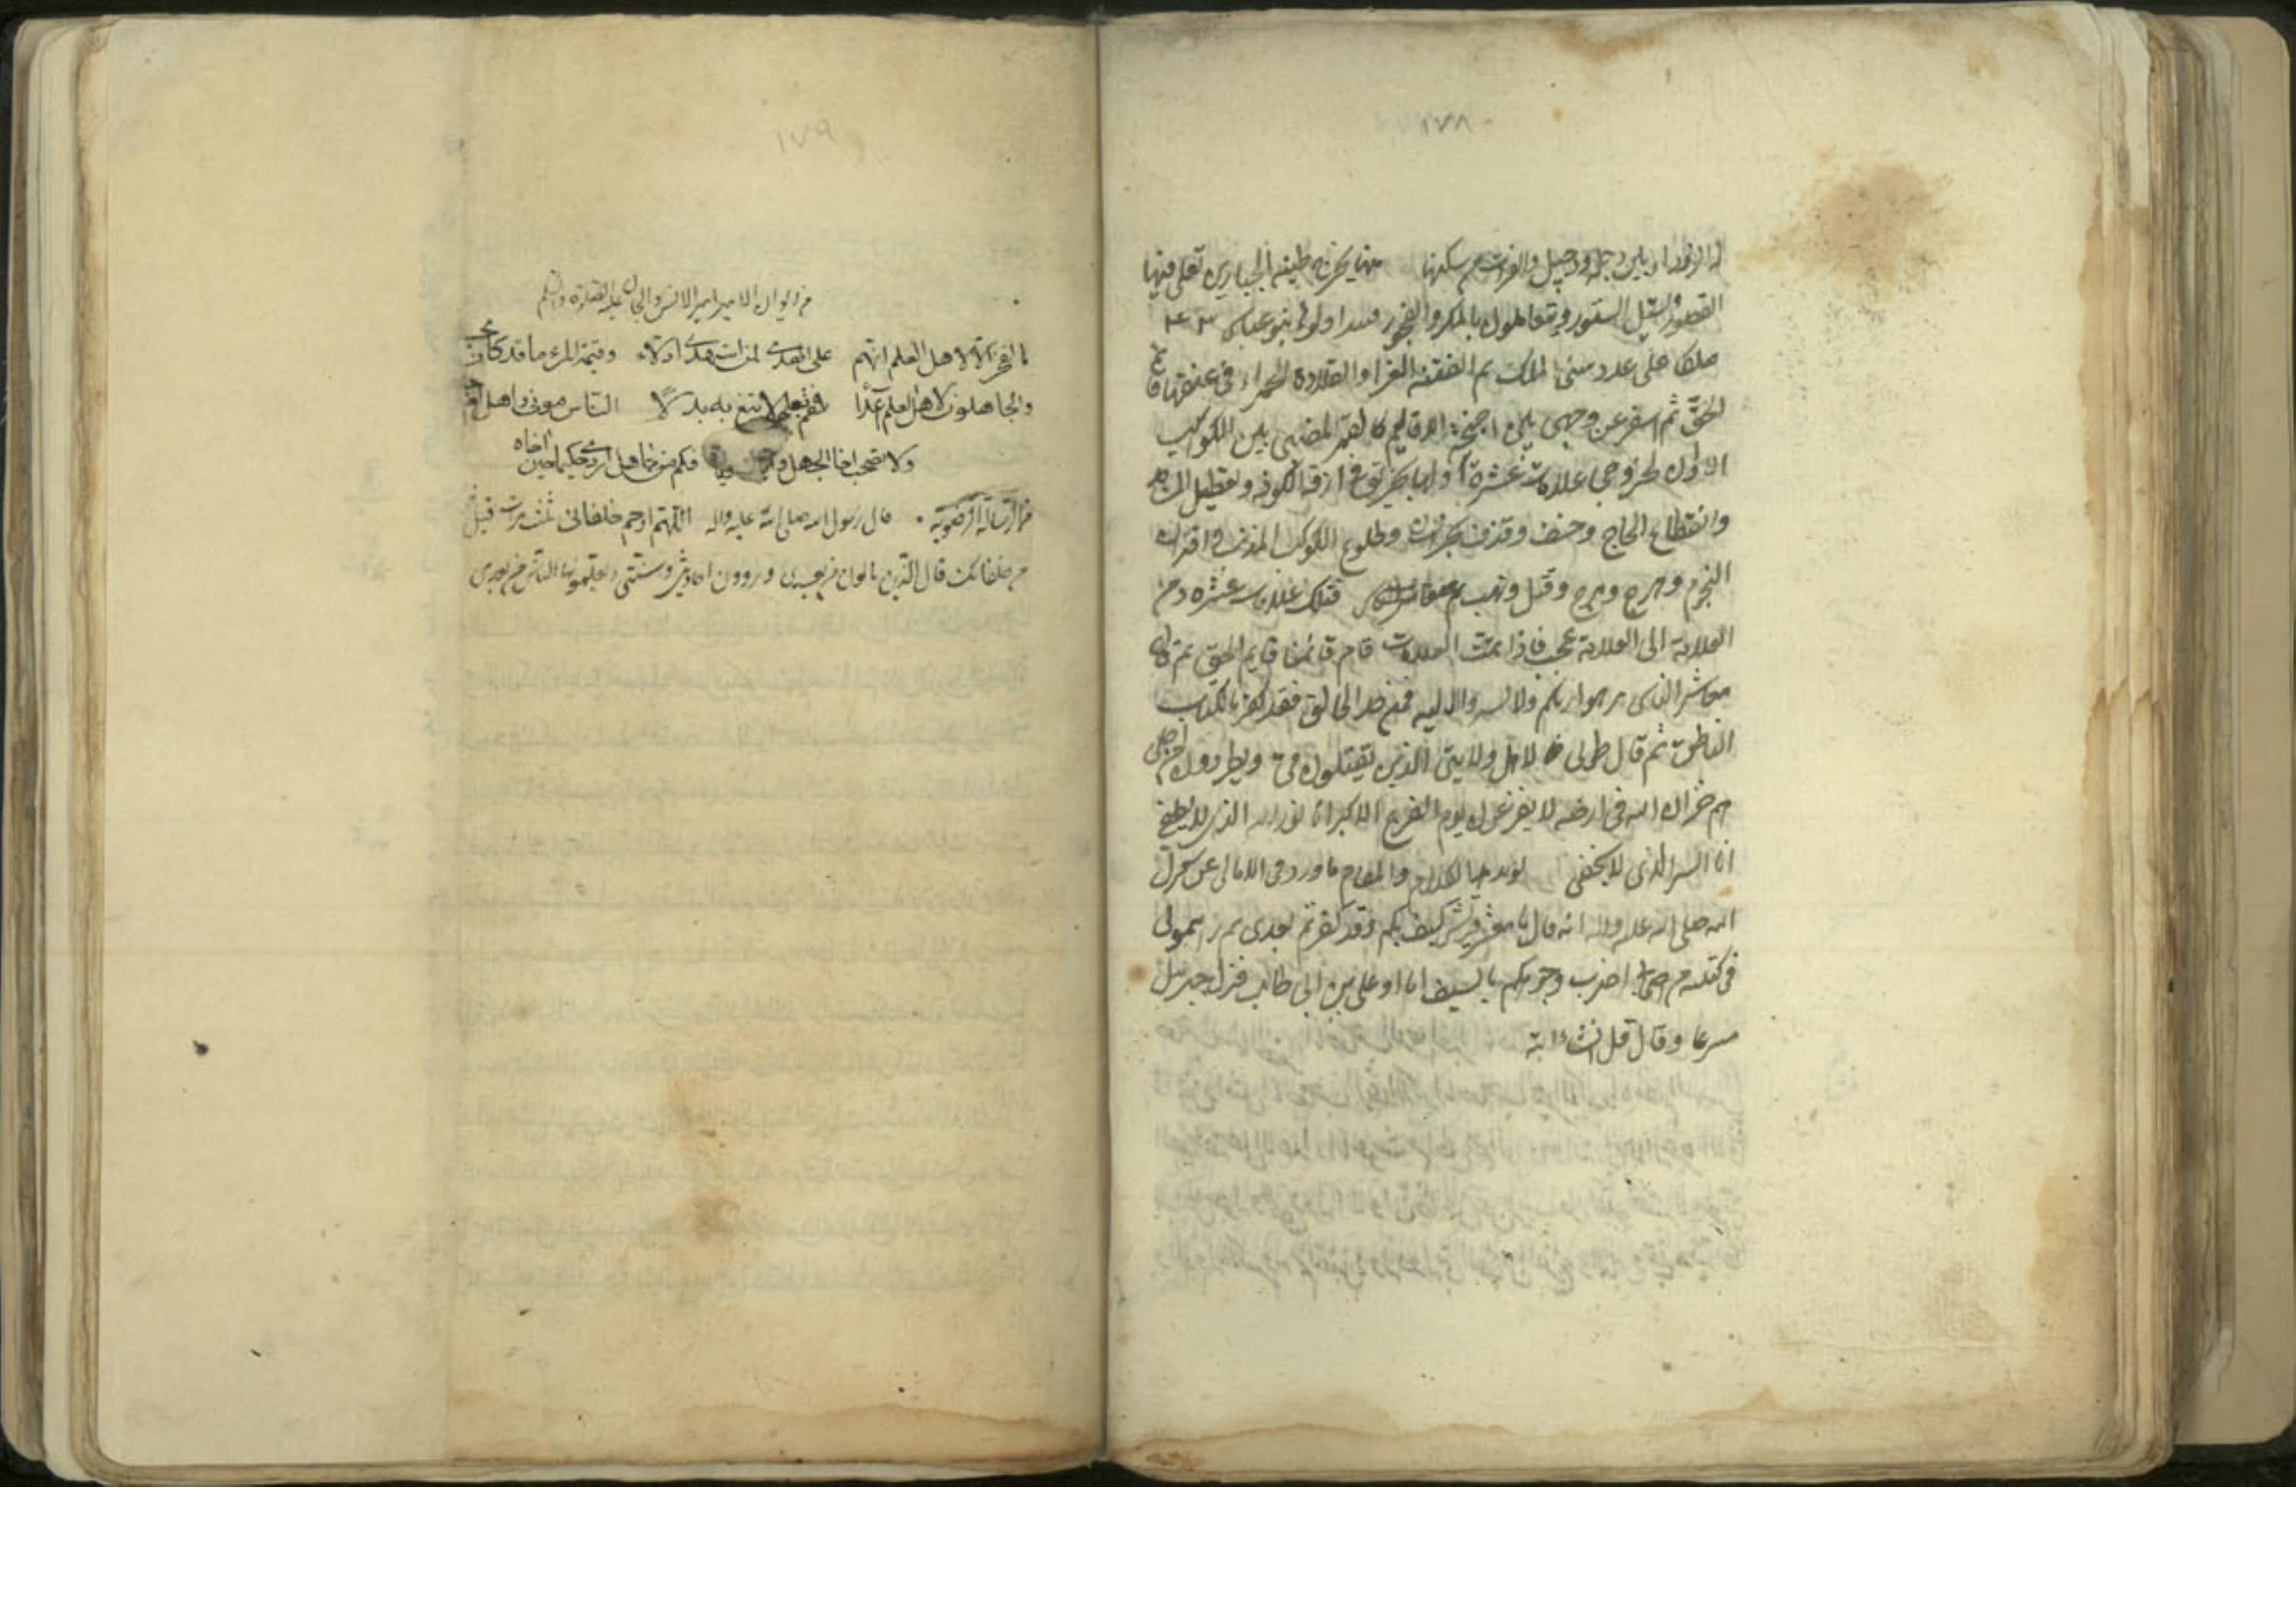 ١٧٨
القصور وتسبل الستور ويتعاملون بالمكر والفجور بنو عباس
ملكا على عدد سنى الملك ثم الفتنة الغبرا والقلادة الحمراء فى عنقها قائم
الحق ثم اسفر عن وجهى بين اجنحة الاقاليم كالقمر المضئ بين الكواكب
الا وان لخروجى علامات عشرة اولها فى ازقة الكوفة وتعطيل المساجد
وانقطاع الحاج وخسف وقذف بخراسان وطلوع الكوكب المذنب واقتران
النجوم وهرج ومرج وقتل ونهب فتلك علامات عشرة ومن
العلامة الى العلامة عجب فاذا تمت العلامات قام قائمنا قايم الحق ثم قال
معاشر الناس نزهوا ربكم ولا تشيروا اليه فمن حد الخالق فقد كفر بالكتاب
الناطق ثم قال طوبى لاهل ولايتى الذين يقتلون فى ويطردون من اجلى
هم خزان الله فى ارضه لا يفزعون يوم الفزع الاكبر انا نور الله الذى لا يطفى
انا السر الذى لا يخفى الكلام والمقام ما ورد فى الامالى عن
الله صلى الله عليه واله انه قال يا معشر قريش كيف بكم وقد كفرتم بعدى ثم رايتمونى
فى كتيبة من اصحابى اضرب وجوهكم بالسيف انا او على بن ابى طالب فنزل جبريل
مسرعا وقال قل انشاء الله
١٧٩
من ديوان الامير امير الانس والجان عليه الصلوة والسلم
ما الفخر الا لاهل العلم انهم على الهدى لمن استهدى ادلاء وقيمة المرء ما قد كان يحسنه
والجاهلون لاهل العلم اعداء فقم بعلم لا تبغ به بدلا الناس موتى واهل العلم
ولا تصحب اخا الجهل فكم من جاهل اردى حكيما حين آخاه
قال رسول الله صلى الله عليه واله اللهم ارحم خلفائى ثلث مرات قيل
من خلفائك قال الذين ياتون من بعدى ويروون احاديثى وسنتى ويعلمونها الناس من بعدى